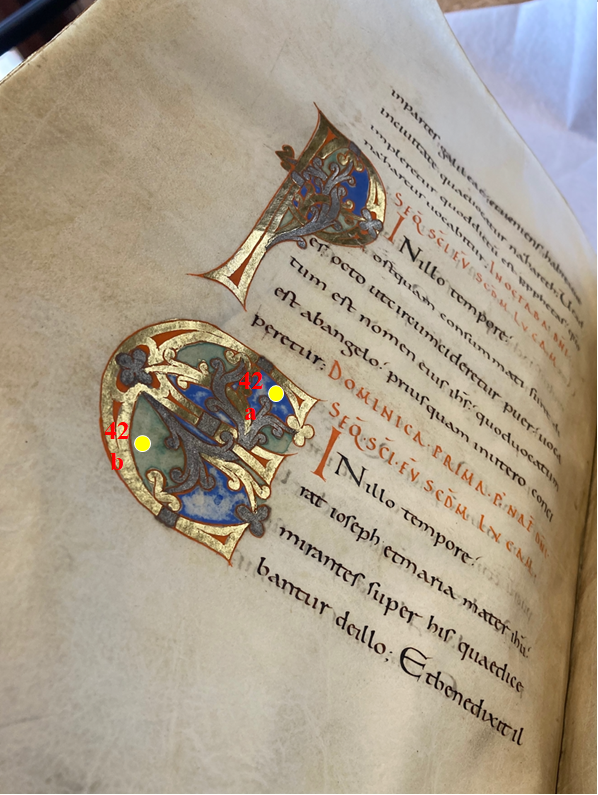 inpartes galileae
inciuitate quaeuocatur nazareth:
impleretur quoddictu est
nazareus uocabitur. IN OCTABAS DNI
SEQ SCI EV SCDM LVCAM
INillo tempore:
Postquam consummati sunt di
es octo utcircumcideretur puer: uoca
tum est nomen eius ihs: quoduocatum
est abangelo: priusquam inutero conci
peretur: DOMINICA PRIMA P NAT DNI
SEQ SCI EV SCDM LVCAM
INillo tempore:
Erat ioseph etmaria mater ihu
mirantes super his quaedice
bantur deillo; Etbenedixit il
42
a
42
b